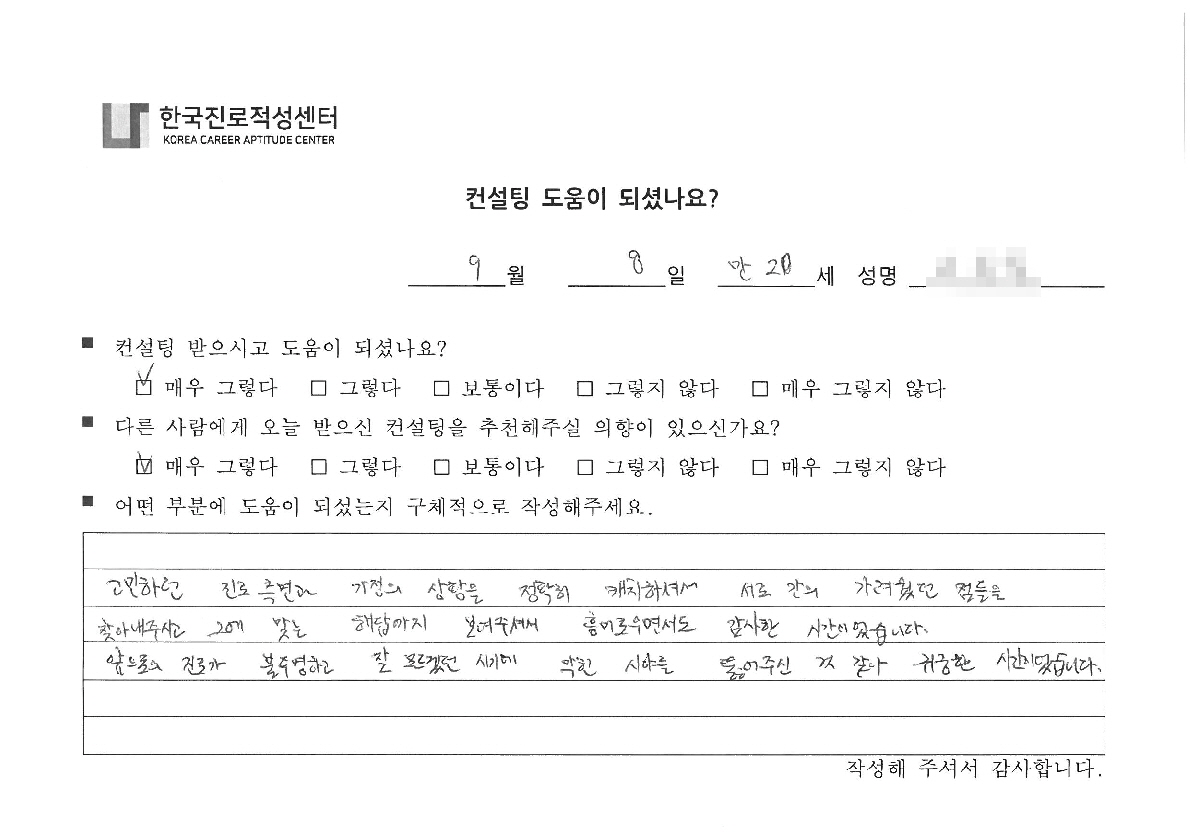 한국진로적성센터
KOREA CAREER APTITUDE CENTER
컨설팅 도움이 되셨나요?
9 월 8 일 만 20 세 성명
■ 컨설팅 받으시고 도움이 되셨나요?
☑ 매우 그렇다 □ 그렇다 □ 보통이다 □ 그렇지 않다 □ 매우 그렇지 않다
■ 다른 사람에게 오늘 받으신 컨설팅을 추천해주실 의향이 있으신가요?
☑ 매우 그렇다 □ 그렇다 □ 보통이다 □ 그렇지 않다 □ 매우 그렇지 않다
■ 어떤 부분에 도움이 되셨는지 구체적으로 작성해주세요.
고민하던 진로 측면과 가정의 상황을 정확히 캐치하셔서 서로 간의 가려웠던 점들을
찾아내주시고 그에 맞는 해답까지 보여주셔서 흥미로우면서도 감사한 시간이었습니다.
앞으로의 진로가 불투명하고 잘 모르겠던 시기에 막힌 시야를 뚫어주신 것 같다 귀중한 시간이었습니다.
작성해 주셔서 감사합니다.